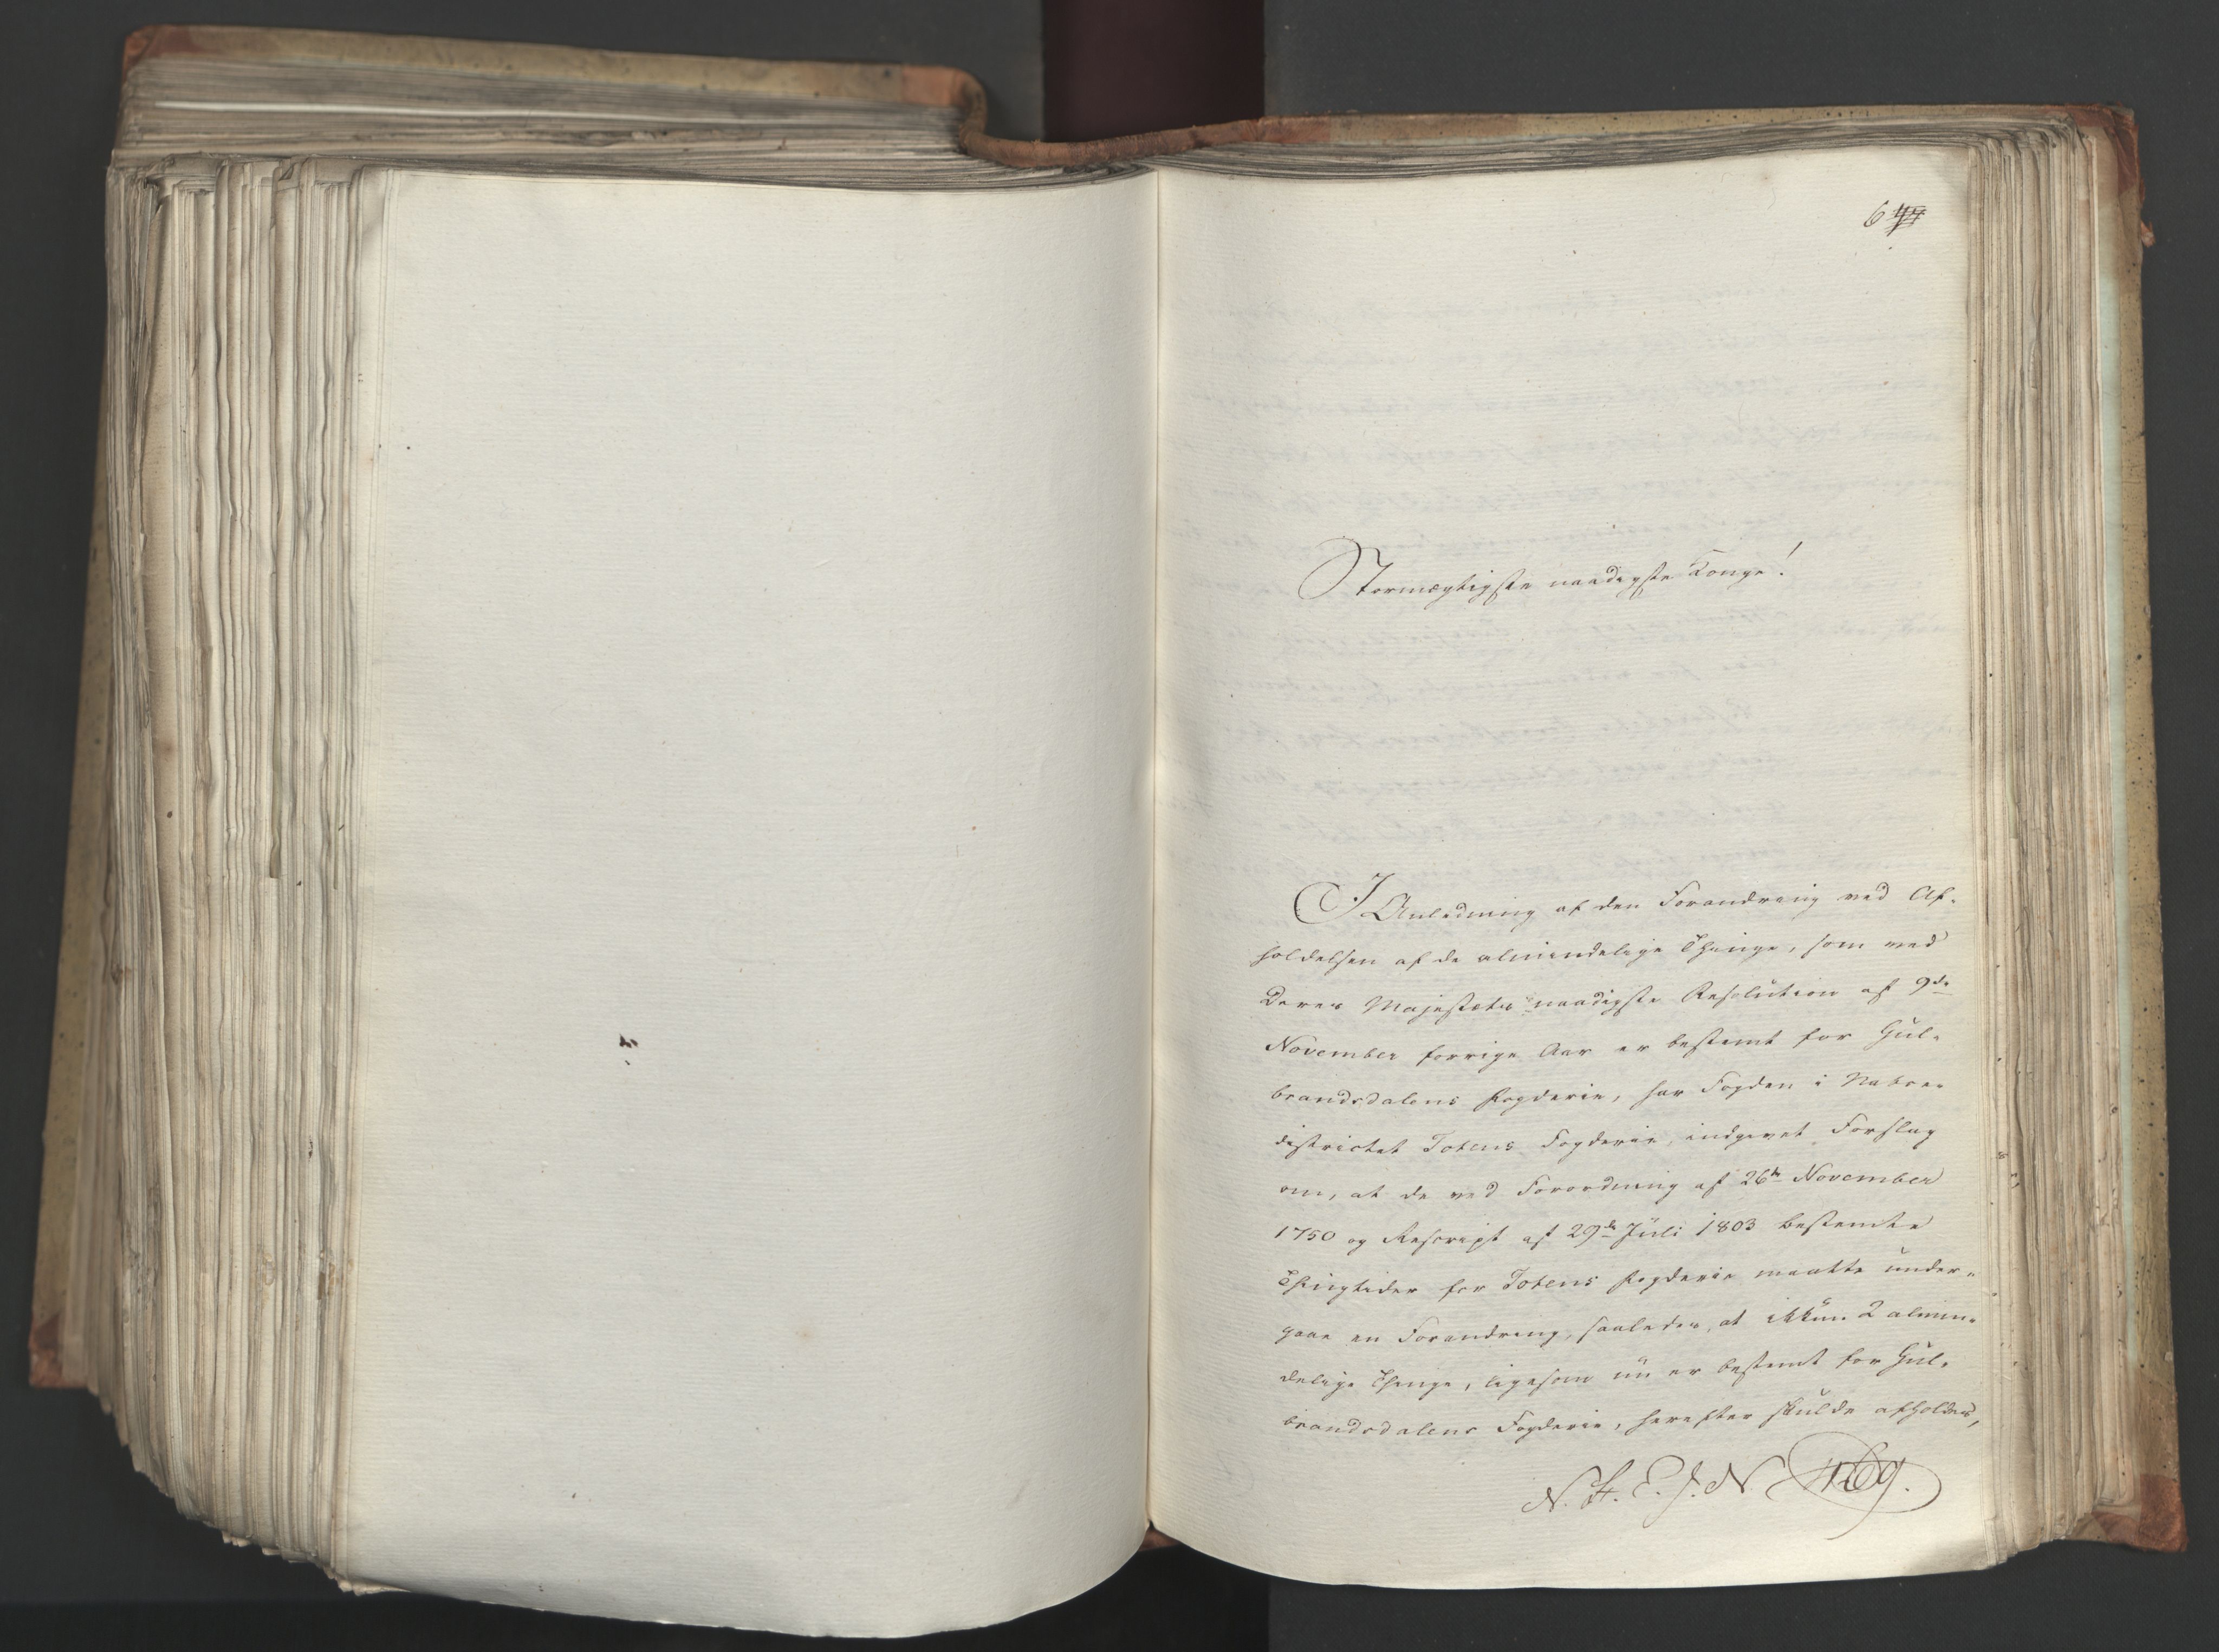 Stormægtigste naadigste Konge!
I Anledning af den Forandring ved Af-
holdelsen af de almindelige Thinge, som ved
Deres Majestæts naadigste Resolution af 9de
November forrige Aar er bestemt for Gul-
brandsdalens Fogderie, har Fogden i Naboe-
districtet Totens Fogderie indgivet Forslag
om, at de ved Forordning af 26de November
1750 og Rescript af 29de Juli 1803 bestemte
Thingtider for Totens Fogderie maatte under-
gaae en Forandring, saaledes, at ikkun 2 almin-
delige Thinge, ligesom nu er bestemt for Gul-
brandsdalens Fogderie, herefter skulde afholdes,